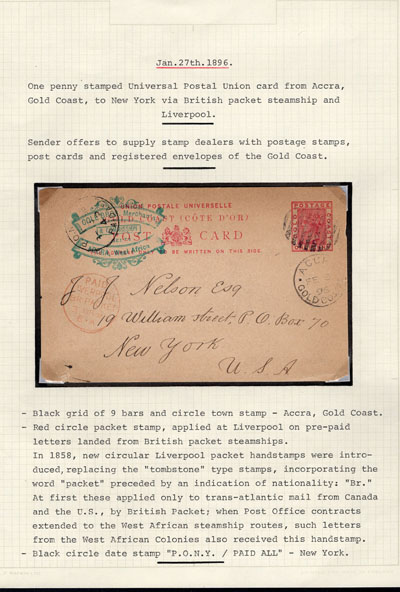 Jan.27th.1896.
One penny stamped Universal Postal Union card from Accra,
Gold Coast, to New York via British packet steamship and
Liverpool.
Sender offers to supply stamp dealers with postage stamps,
post cards and registered envelopes of the Gold Coast.
UNION POSTALE UNIVERSELLE
COAST (CÔTE D'OR)
POST CARD
BE WRITTEN ON THIS SIDE.
POSTAGE
West Africa
PAID
ACCRA
GOLD COAST
J J Nelson Esq
19 William street, P.O. Box 70
New York
U.S.A
- Black grid of 9 bars and circle town stamp - Accra, Gold Coast.
- Red circle packet stamp, applied at Liverpool on pre-paid
letters landed from British packet steamships.
In 1858, new circular Liverpool packet handstamps were intro-
duced, replacing the "tombstone" type stamps, incorporating the
word "packet" preceded by an indication of nationality: "Br."
At first these applied only to trans-atlantic mail from Canada
and the U.S., by British Packet; when Post Office contracts
extended to the West African steamship routes, such letters
from the West African Colonies also received this handstamp.
- Black circle date stamp "P.O.N.Y. / PAID ALL" - New York.